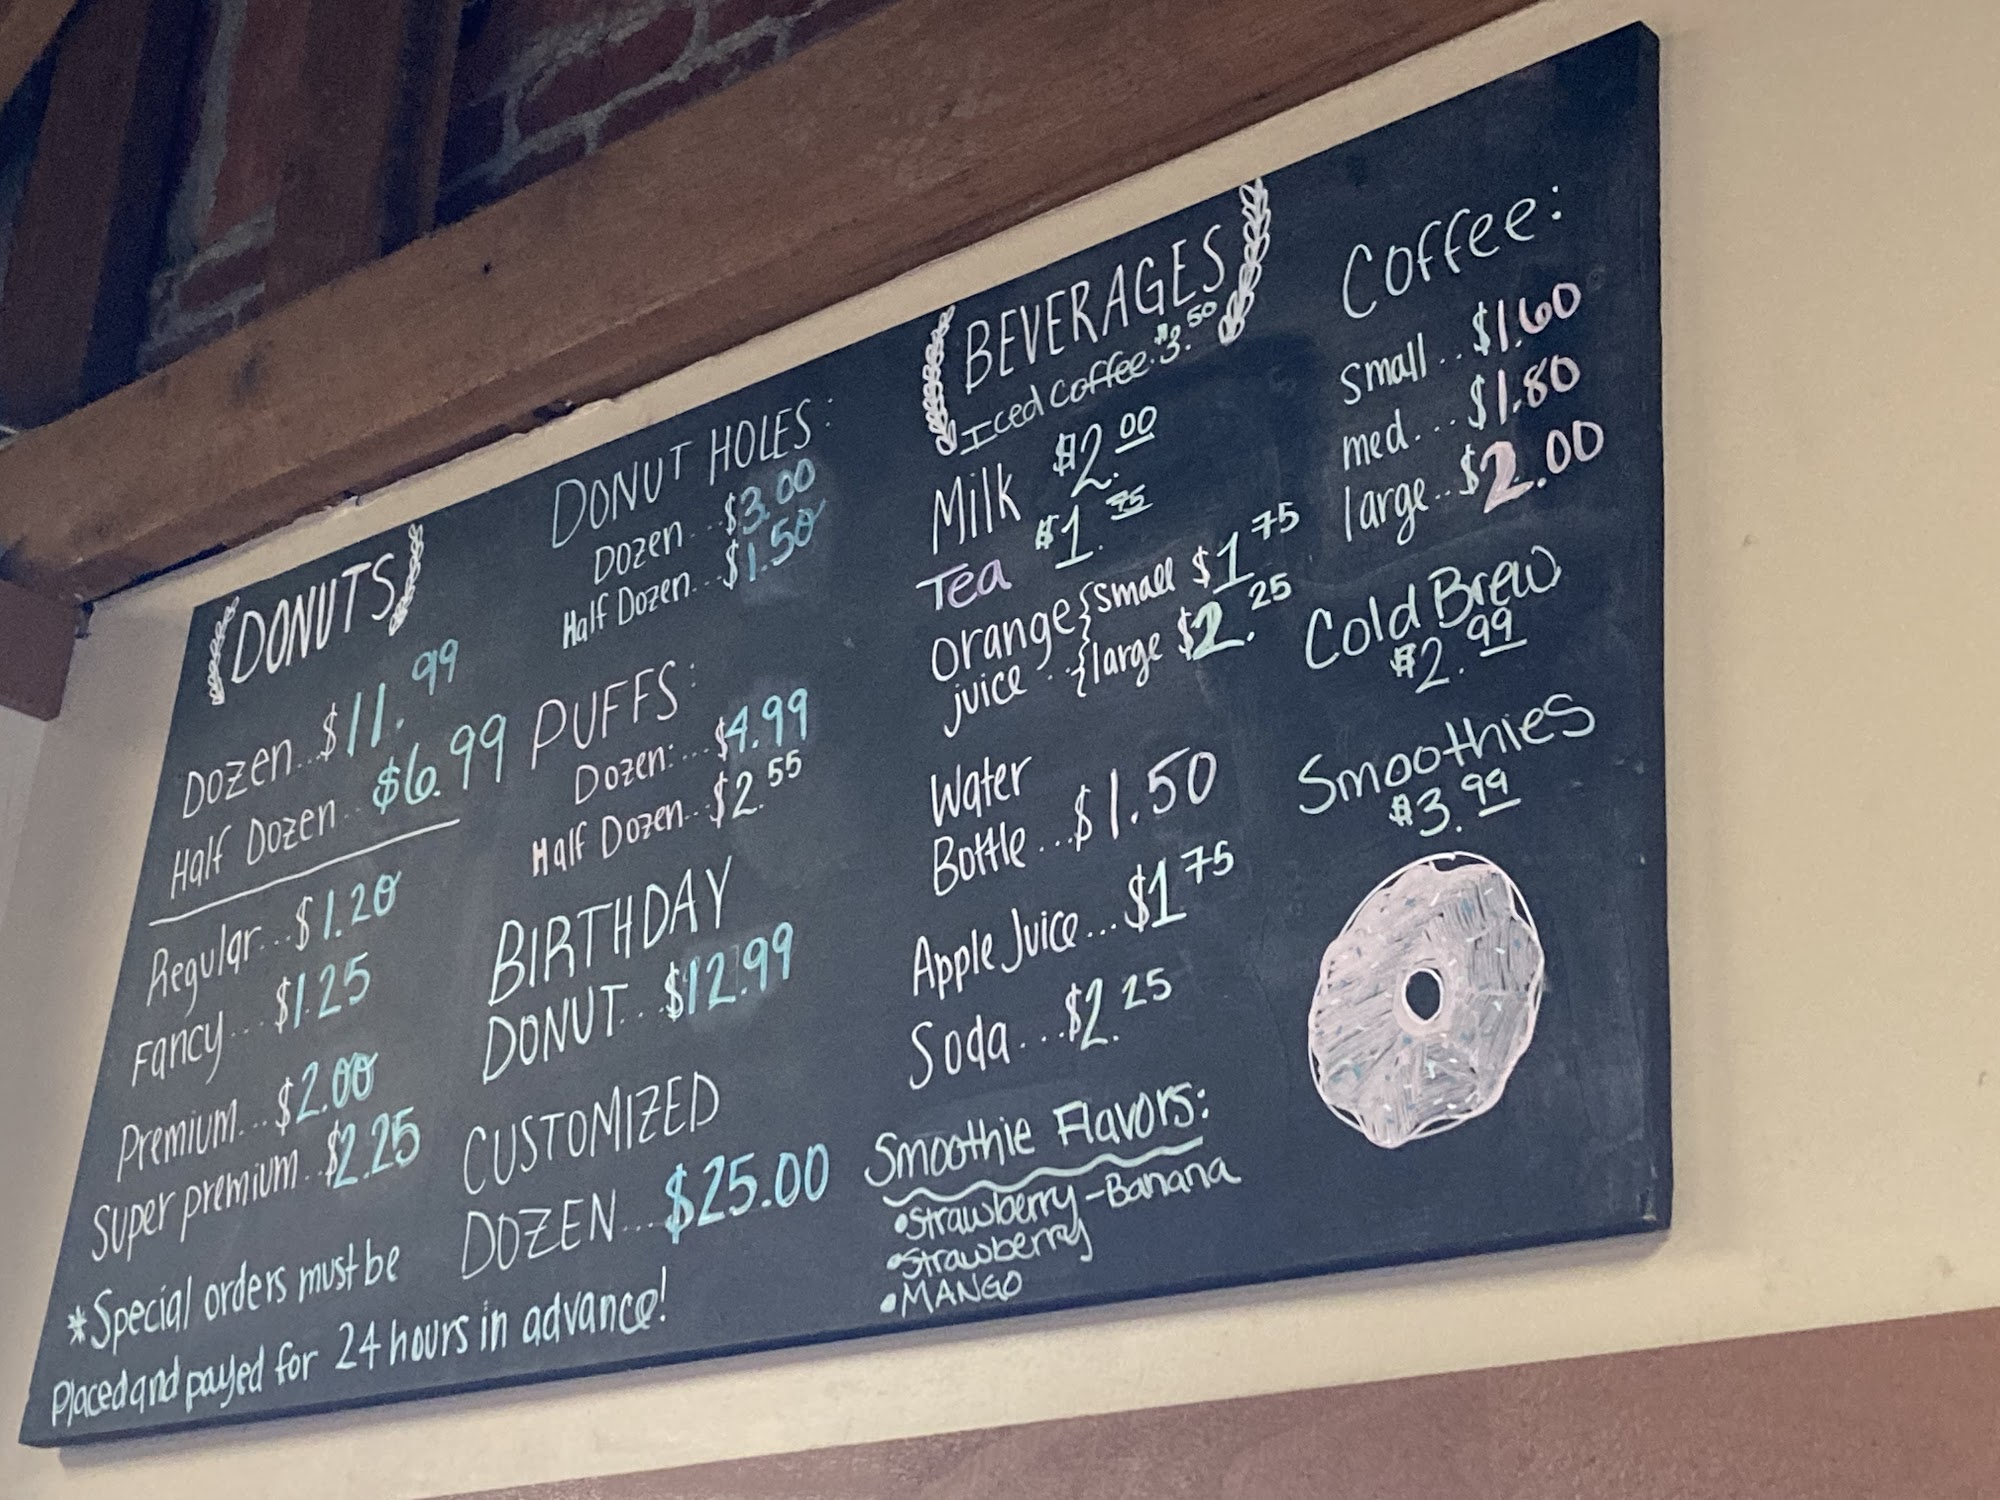 DONUTS
Dozen...$11.99
Half Dozen...$6.99
Regular...$1.20
Fancy...$1.25
Premium...$2.00
Super premium...$2.25
*Special orders must be
Placed and payed for 24 hours in advance!
DONUT HOLES:
Dozen...$3.00
Half Dozen...$1.50
PUFFS:
Dozen:...$4.99
Half Dozen...$2.55
BIRTHDAY
DONUT...$12.99
CUSTOMIZED
DOZEN...$25.00
BEVERAGES
Iced Coffee.$3.50
Milk $2.00
Tea $1.75
Orange {small $1.75
juice..{large $2.25
Water
Bottle...$1.50
Apple Juice...$1.75
Soda...$2.25
Smoothie Flavors:
•Strawberry-Banana
•Strawberry
•MANGO
Coffee:
small...$1.60
med....$1.80
large..$2.00
Cold Brew
$2.99
Smoothies
$3.99